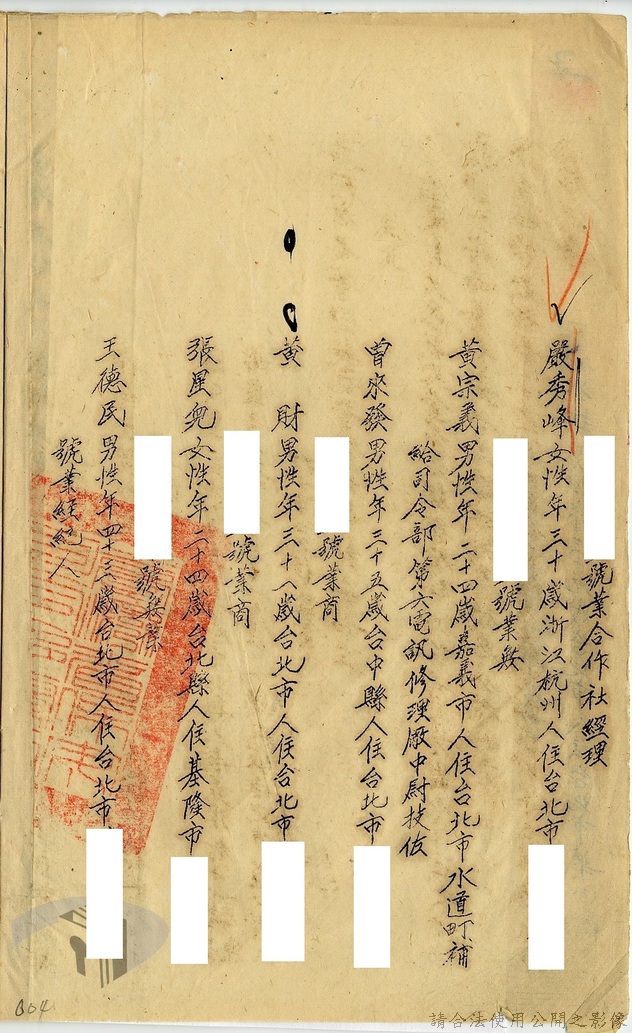 嚴秀峰女性年三十歲浙江杭州人住台北市
號業合作社經理
黃宗義男性年二十四歲嘉義市人住台北市水道町補
給司令部第六電訊修理廠中尉技佐
號業無
曾來發男性年三十五歲台中縣人住台北市
號業商
黃 財男性年三十八歲台北市人住台北市
號業商
張星
女性年二十四歲台北縣人住基隆市
號無業
王德民男性年四十三歲台北市人住台北市
號業經紀人
B04
請合法使用公開之影像